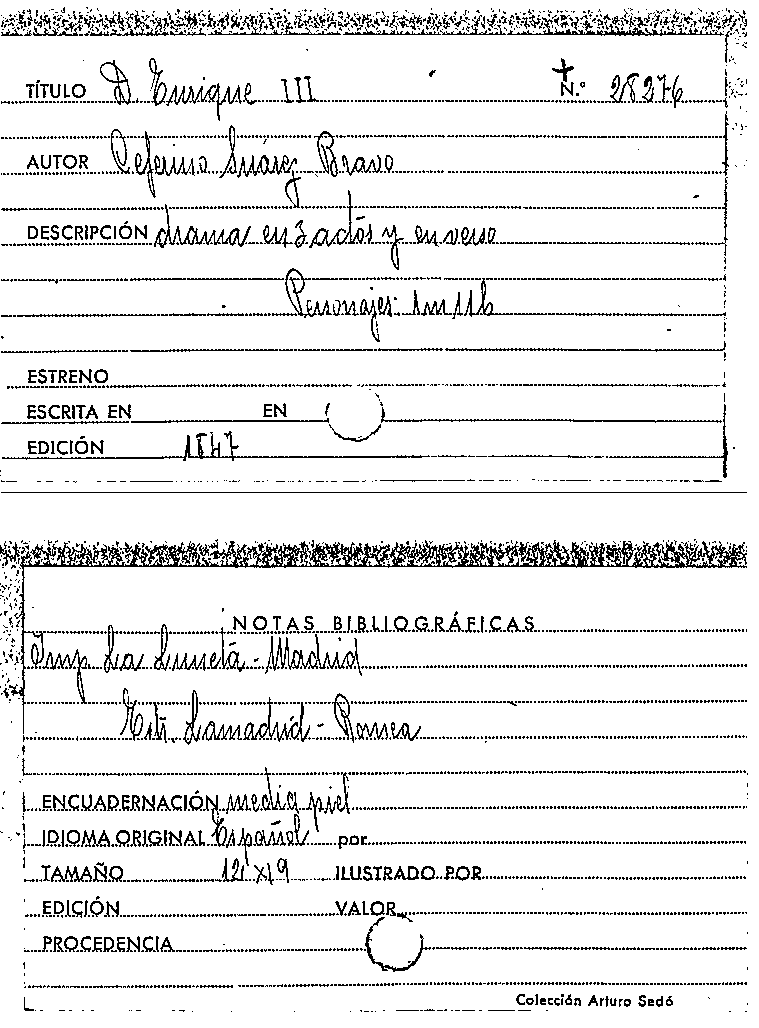 TÍTULO D. Enrique III N.º 28276
AUTOR Ceferino Suárez Bravo
DESCRIPCIÓN drama en 3 actos y en verso
Personajes: 1m 11h
ESTRENO
ESCRITA EN EN
EDICIÓN 1847
NOTAS BIBLIOGRÁFICAS
Imp. La Luneta - Madrid
Estr. Lamadrid - Romea
ENCUADERNACIÓN media piel
IDIOMA ORIGINAL Español por
TAMAÑO 12'x19 ILUSTRADO POR
EDICIÓN VALOR
PROCEDENCIA
Colección Arturo Sedó